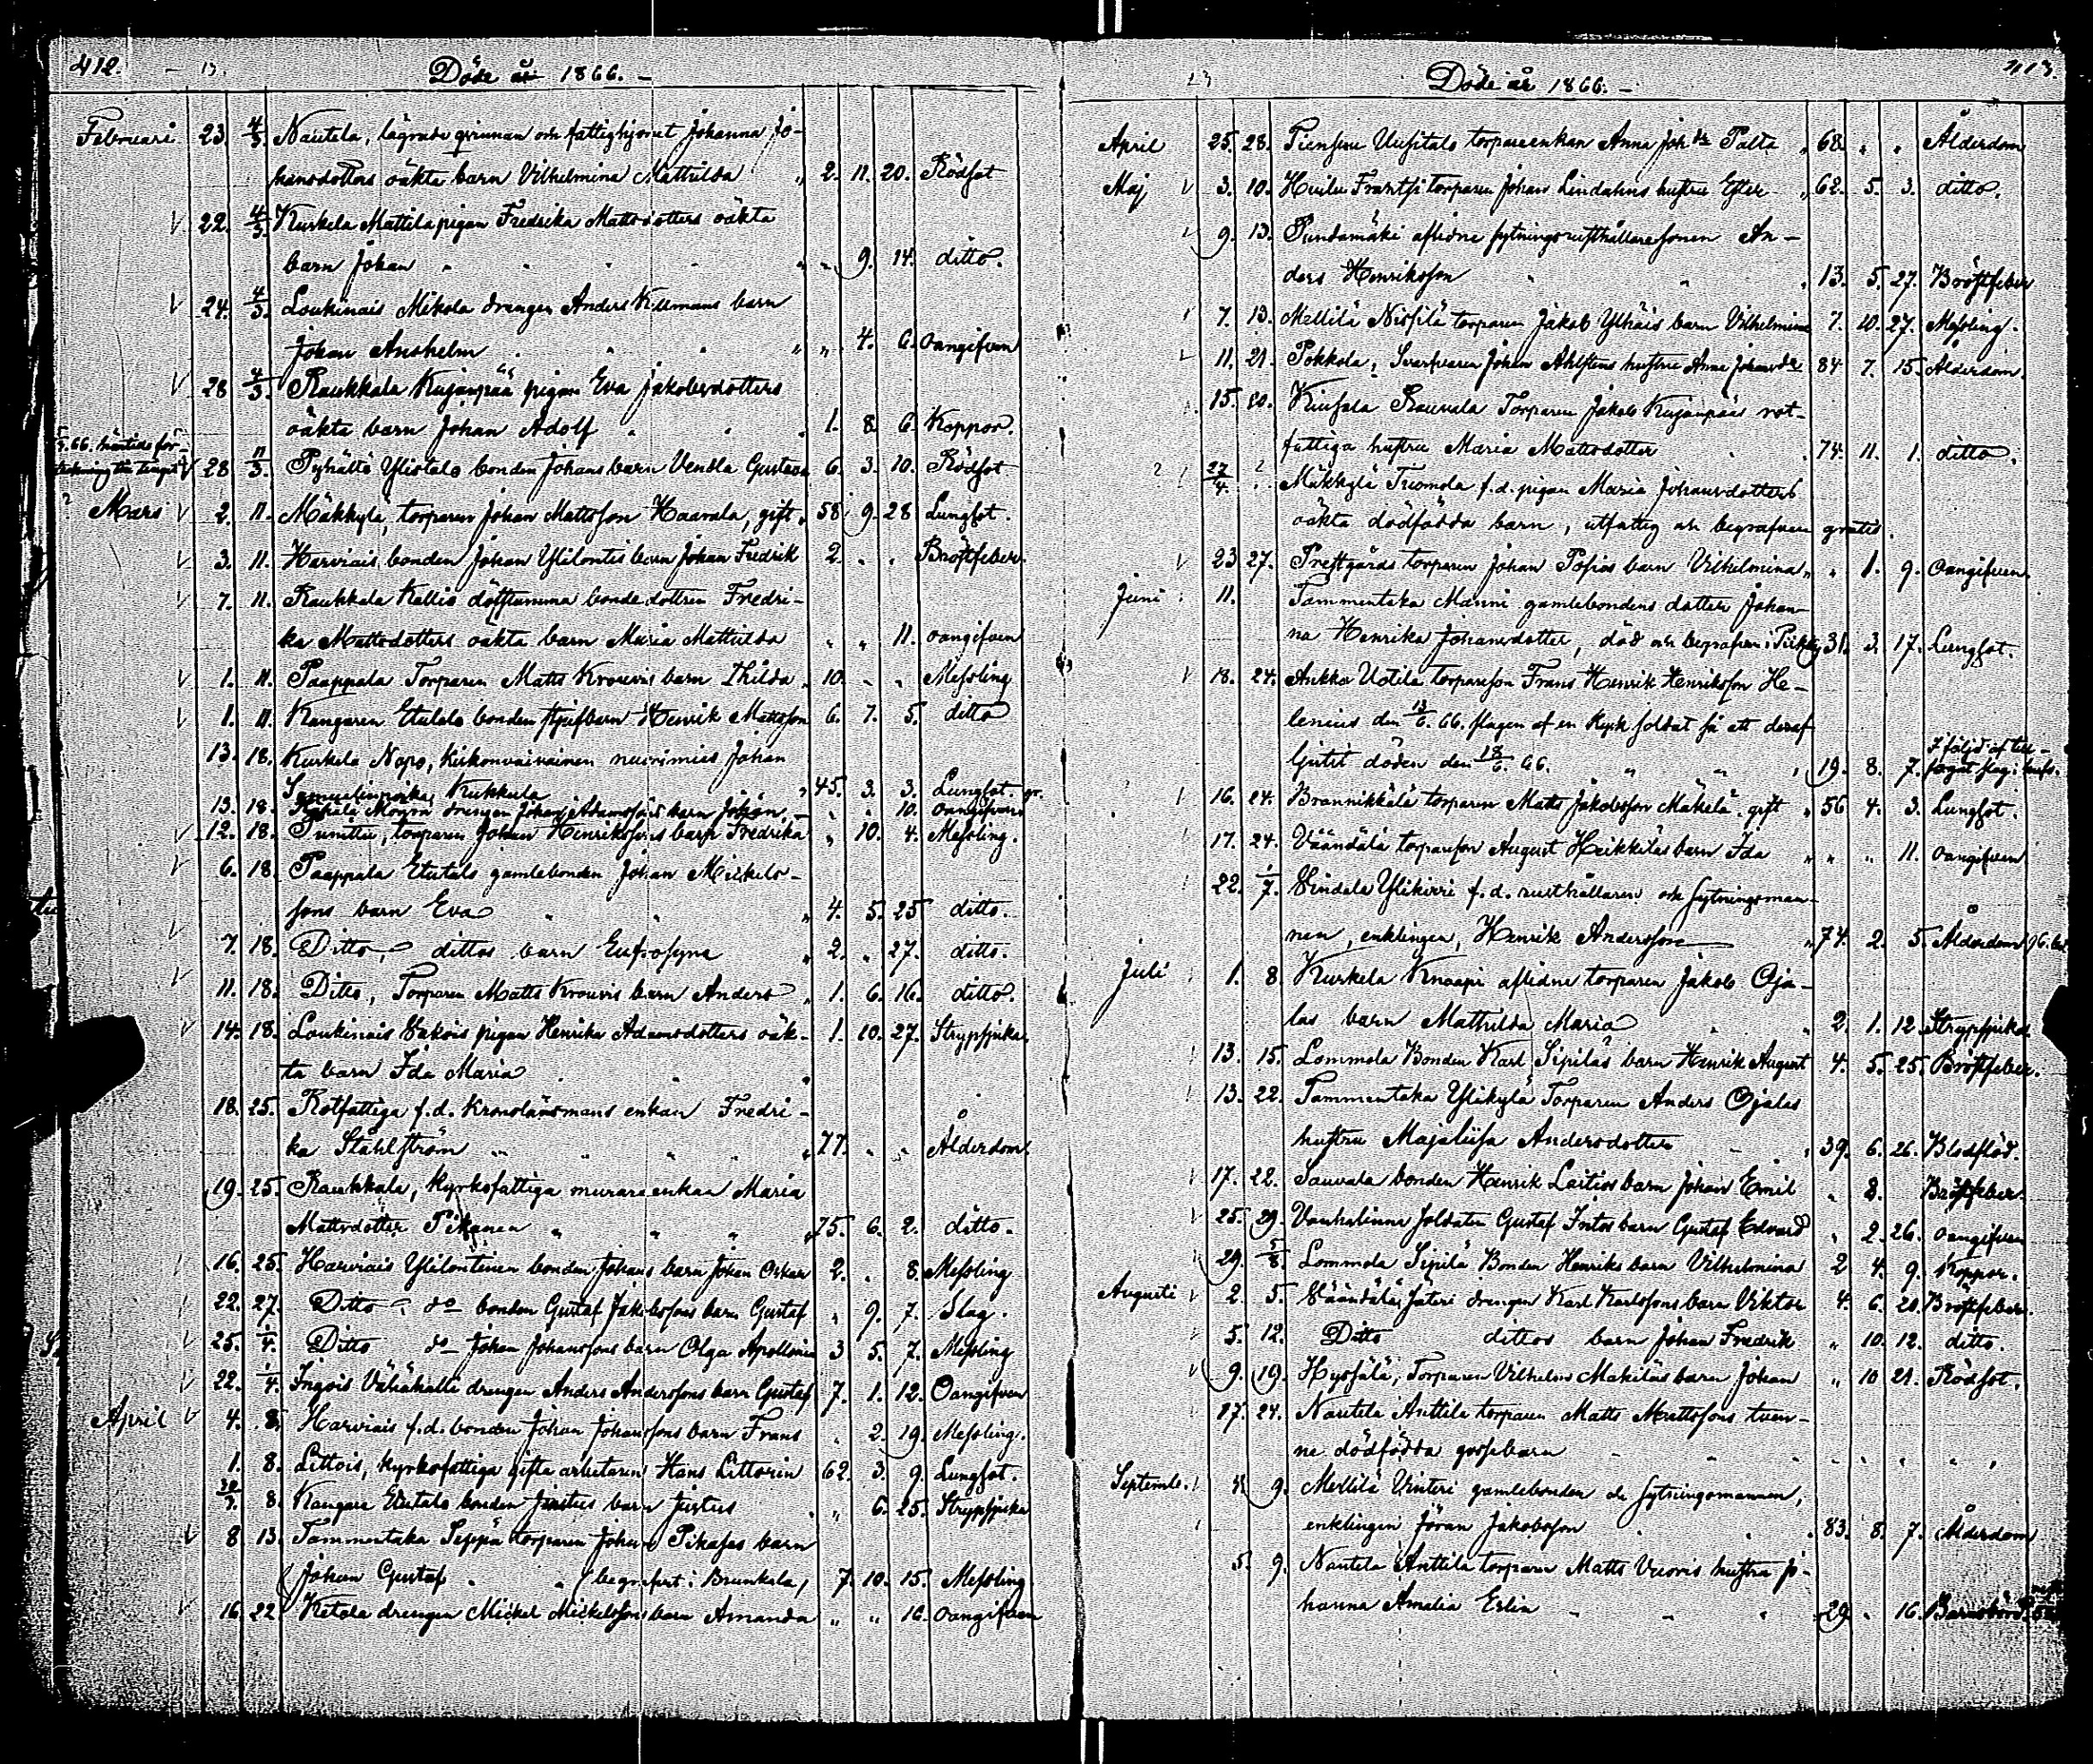 412.
Döde år 1866. –
Februari 23. 4/3. Nautela, lägrade qvinnan och fattighjonet Johanna Jo-
hansdotters oäkta barn Vilhelmina Mathilda „ 2. 11. 20. Rödsot
22. 4/3. Kurkela Mattila pigan Fredrika Mattsdotters oäkta
barn Johan „ „ 9. 14. ditto.
24. 4/3. Loukinais Mikola drengen Anders Killmans barn
Johan Anshelm „ „ 4. 6. Oangifven
28 4/3. Raukkala Kujanpää pigan Eva Jakobsdotters
oäkta barn Johan Adolf 1. 8. 6. Koppor.
28 11/3. Pyhältö Ylistalo bonden Johans barn Vendla Gustava 6. 3. 10. Rödsot
Mars 2. 11. Mäkkylä, torparen Johan Mattsson Haavala, gift „ 58 9. 28 Lungsot.
3. 11. Harviais bonden Johan Ylilontis barn Johan Fredrik 2. „ „ Bröstfeber.
7. 11. Raukkala Kallis döfstumma bonde dottren Fredri-
ka Mattsdotters oäkta barn Maria Mathilda „ „ 11. oangifven
1. 11. Paappala Torparen Matts Krouvis barn Thilda „ 10. „ „ Messling
1. 11. Kangaren Etutalo bonden styfbarn Henrik Mattsson 6. 7. 5. ditto
13. 18. Kurkela Napo, Kirkonvaivainen nuorimies Johan
Samuelinpoika Kukkula „ 45. 3. 3. Lungsot. gr.
13. 18. drengen Johan Adamssons barn Johan. „ „ 10. oangifven
12. 18. torparen Johan Henrikssons barn Fredrika „ 10. 4. Messling.
6. 18. Paappala Etutalo gamlebonden Johan Mickels-
sons barn Eva „ 4. 5. 25 ditto.
7. 18. Ditto, dittos barn Eufrosyne „ 2. „ 27. ditto.
11. 18. Ditto, Torparen Matts Krouvis barn Anders „ 1. 6. 16. ditto.
14. 18. Loukinais pigan Henrika Adamsdotters oäk- 1. 10. 27. Strypsjuka.
ta barn Ida Maria
18. 25. Rotfattiga f.d. Kronolänsmans enkan Fredri-
ka Ståhlström „ 77. „ „ Ålderdom.
19. 25. Raukkala, Kyrkofattiga murare enkan Maria
Mattsdotter Pikanen „ „ 75. 6. 2. ditto.
16. 25. Harviais Ylilontinen bonden Johans barn Johan Oskar 2. „ 8. Messling
22. 27. Ditto do bonden Gustaf Jakobssons barn Gustaf „ 9. 7. Slag.
25. 1/4. Ditto do Johan Johanssons barn Olga Apollonia 3 5. 7. Messling
22. 1/4. Ingois Vähäkalli drengen Anders Anderssons barn Gustaf 7. 1. 12. Oangifven
April 4. 8. Harviais f.d. bonden Johan Johanssons barn Frans „ 2. 19. Messling.
1. 8. Littois, Kyrkofattiga gifta arbetaren Hans Littorin 62. 3. 9. Lungsot.
30/3. 8. Kangare Etutalo bonden Justus barn Justus „ 6. 25. Strypsjuka
8 13. Tammentaka Seppä torparen Johan Pikasas barn
Johan Gustaf (begrafvet i Brunkala) 7. 10. 15. Messling
16. 22 Ketola drengen Mickel Mickelssons barn Amanda „ „ 16. oangifven
413.
Döde år 1866. –
April 25. 28. Uusitalo torpareenkan Anna Johsdr Palta „ 68. „ „ Ålderdom
Maj 3. 10. Huilu Frantsi torparen Johan Lindahns hustru Ester „ 62. 5. 3. ditto.
9. 13. Pundamäki aflidne sytningsrusthållaresonen An-
ders Henriksson „ 13. 5. 27. Bröstfeber
7. 13. Mellilä torparen Jakob Yliäis barn Vilhelmina 7. 10. 27. Messling.
11. 21. Pokkola, Svarfvaren Johan Ahlstens hustru Anna Johansdr 84 7. 15. Ålderdom.
15. 20. Rauvala Torparen Jakob Kujanpääs rot-
fattiga hustru Maria Mattsdotter 74. 11. 1. ditto.
27/4. Mäkkylä Tuomola f.d. pigan Maria Johansdotters
oäkta dödfödda barn, utfattig och begrafven gratis.
23 27. Prestgårds torparen Johan Posios barn Vilhelmina „ „ 1. 9. Oangifven.
Juni 11. Tammentaka Manni gamlebondens dotter Johan-
na Henrika Johansdotter, död och begrafven i Piikkiö 31. 3. 17. Lungsot.
18. 24. Ankka Uotila torpareson Frans Henrik Henriksson He-
lenius den 13/6. 66. slagen af en rysk soldat så att deraf
ljutit döden den 18/6. 66. „ 19. 8. 7. I följd af till-
16. 24. Brannikkälä torparen Matts Jakobsson Mäkelä, gift „ 56 4. 3. Lungsot.
17. 24. Väändälä torpareson August Heikkiläs barn Ida „ „ „ 11. oangifven
22. 1/7. Ylikirri f.d. rusthållaren och sytningsman-
nen, enklingen, Henrik Andersson „ 74. 2. 5. Ålderdom
Juli 1. 8 Kurkela Knaapi aflidne torparen Jakob Oja-
las barn Mathilda Maria „ 2. 1. 12 Strypsjuka
13. 15. Lommola Bonden Karl Sipiläs barn Henrik August 4. 5. 25. Bröstfeber.
13. 22. Tammentaka Ylikylä Torparen Anders Ojalas
hustru Majalisa Andersdotter „ 39. 6. 26. Blodflöd.
17. 22. Sauvala bonden Henrik Laitios barn Johan Emil „ 8. Bröstfeber.
25. 29. Vanhalinna soldaten Gustaf Intos barn Gustaf Edvard „ 2. 26. oangifven
29. 5/8. Lommola Sipilä Bonden Henriks barn Vilhelmina 2 4. 9. Koppor.
Augusti 2. 5. Väändälä Säteri drengen Karl Karlssons barn Viktor 4. 6. 20. Bröstfeber.
5. 12. Ditto dittos barn Johan Fredrik „ 10. 12. ditto.
9. 19. Hypsälä, Torparen Vilhelm Makiläs barn Johan „ 10 21. Rödsot.
17. 24. Nautela Anttila torparen Matts Mattssons tven-
ne dödfödda gossebarn
Septemb. 4. 9. Mellilä Vinteri gamlebonden och sytningsmannen,
enklingen Jöran Jakobsson „ 83. 8. 7. Ålderdom
5. 9. Nautela Anttila torparen Matts Vuoris hustru Jo-
hanna Amalia Erlin „ 29. „ 16. Barnsbörd